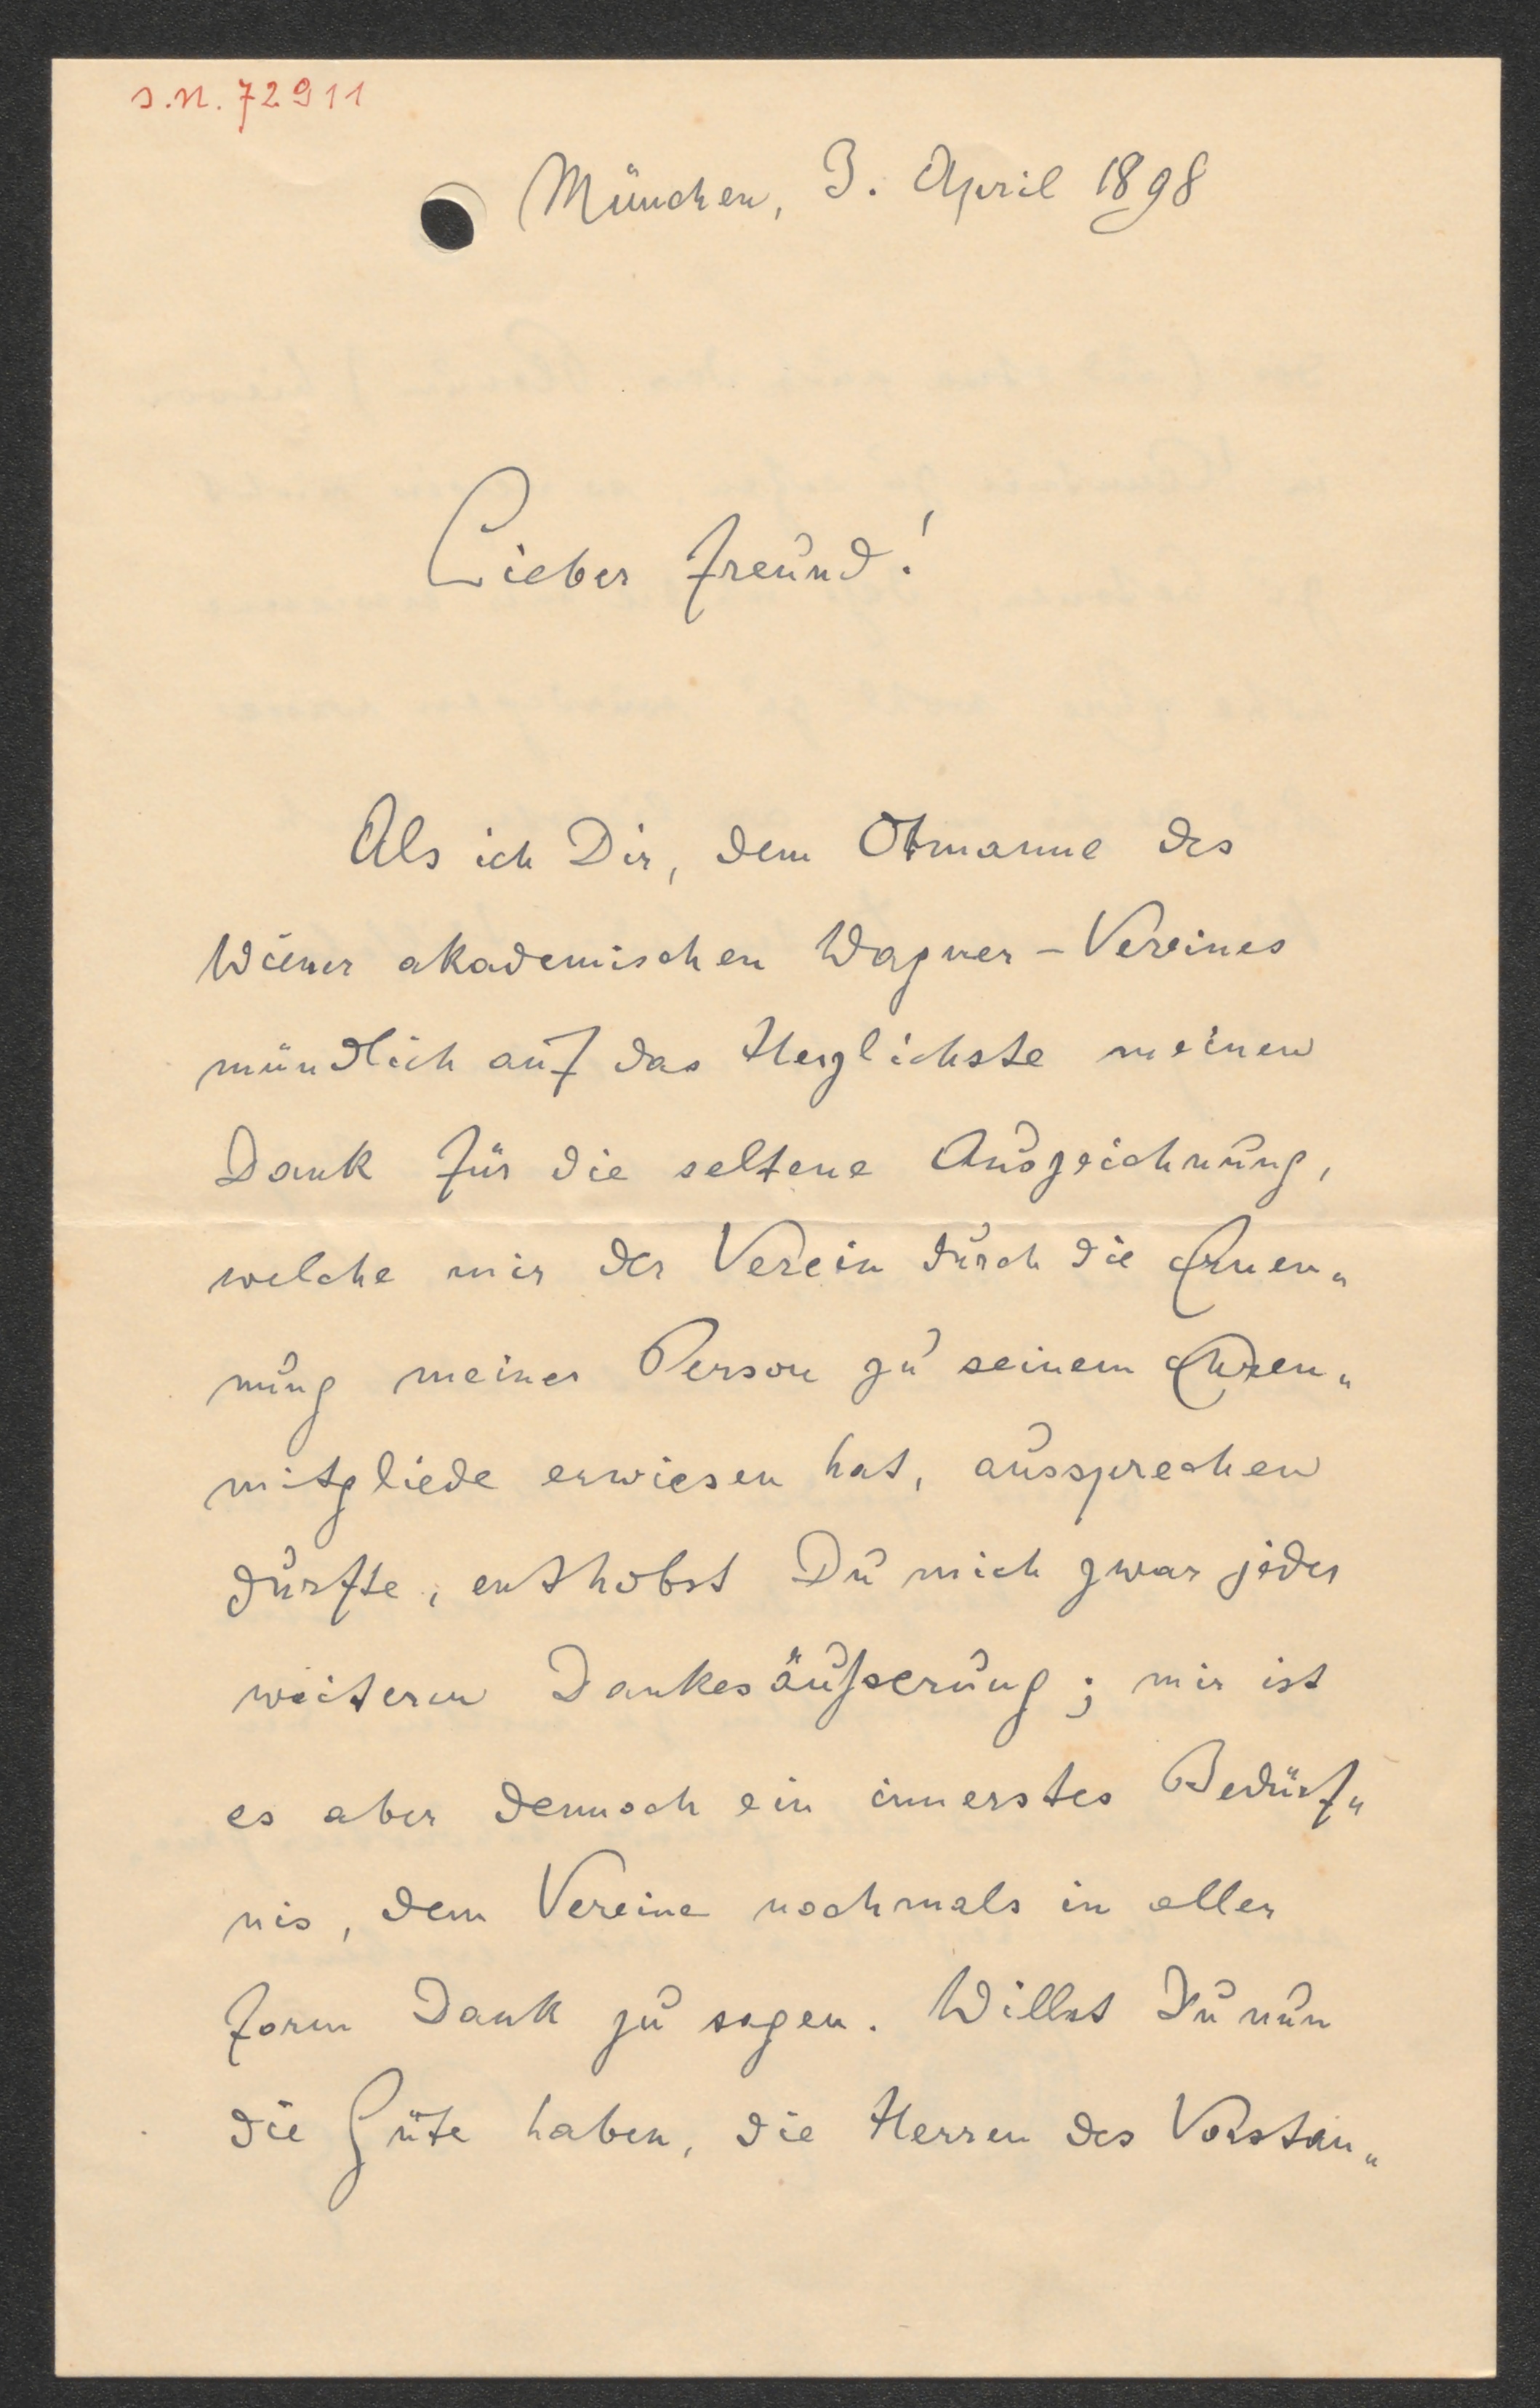 J.N. 72911
München, 3. April 1898
Lieber Freund!
Als ich Dir, dem Obmanne des
Wiener akademischen Wagner-Vereines
mündlich auf das Herzlichste meinen
Dank für die seltene Auszeichnung,
welche mir der Verein durch die Ernen„
nung meiner Person zu seinem Ehren„
mitgliede erwiesen hat, aussprechen
durfte, enthobst Du mich zwar jeder
weiteren Dankesäußerung; mir ist
es aber dennoch ein innerstes Bedürf„
nis, dem Vereine nochmals in aller
Form Dank zu sagen. Willst Du nun
die Güte haben, die Herren des Vorstan„